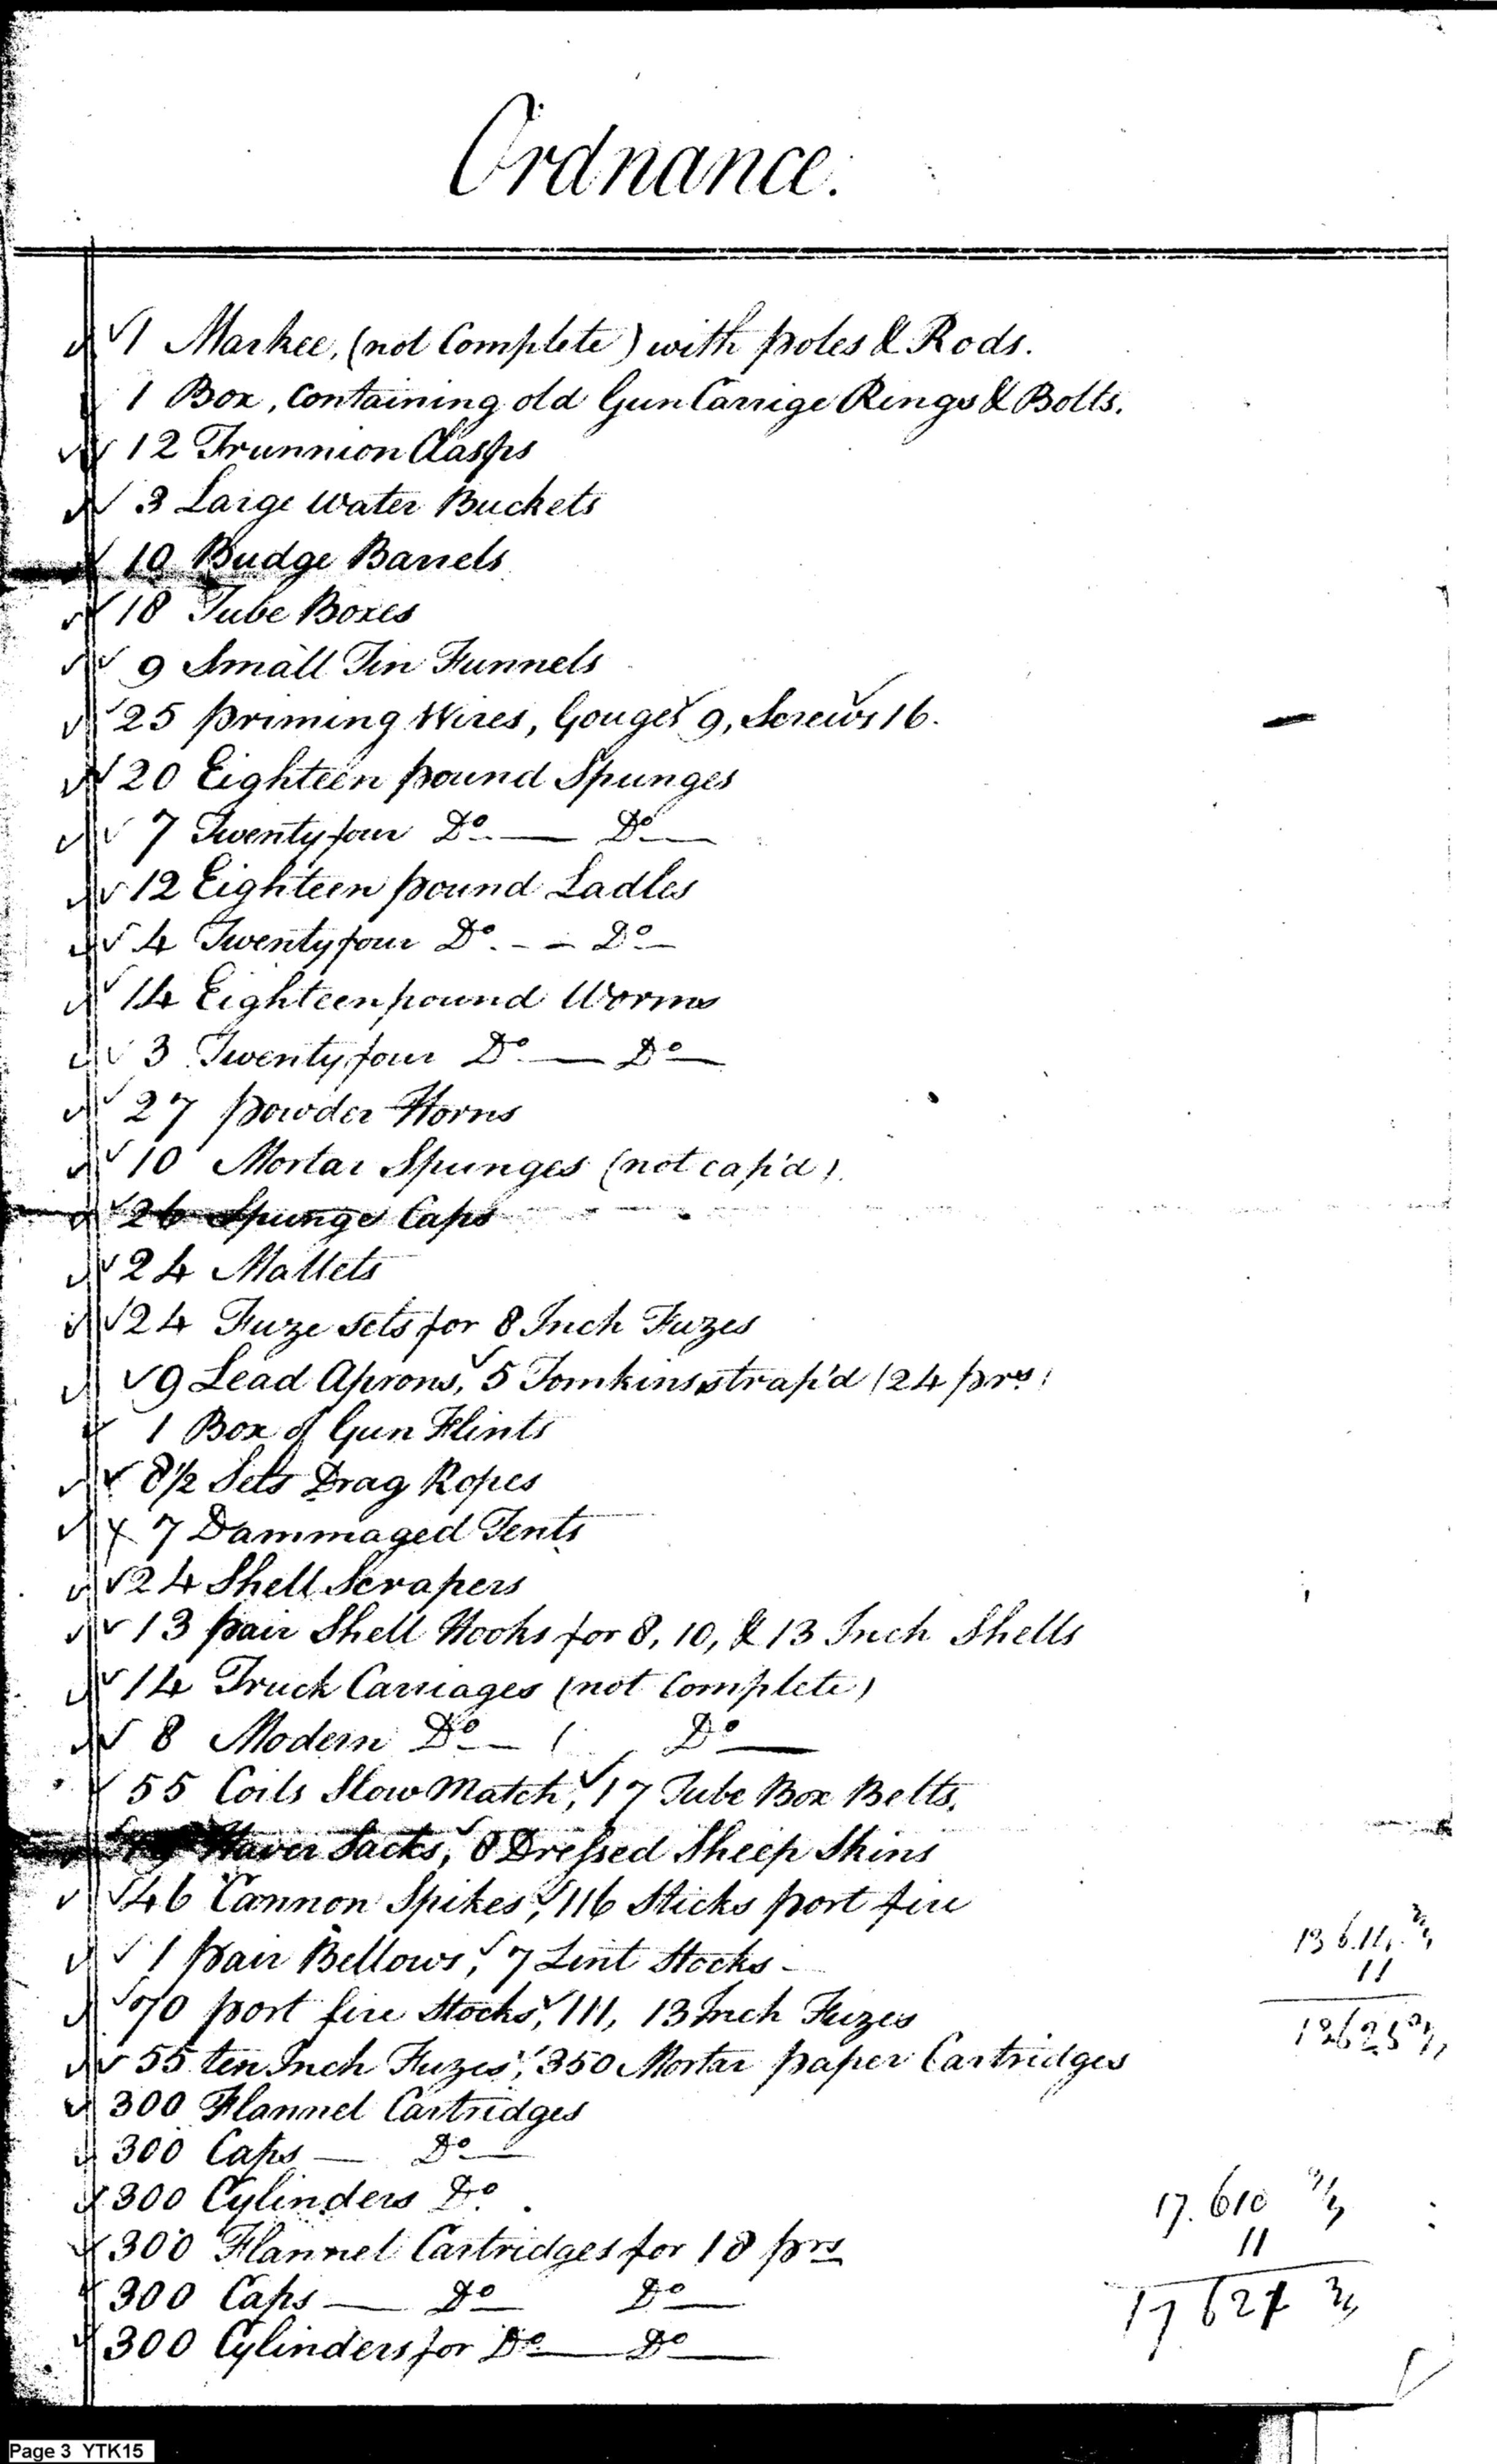 Ordnance.
1 Markee, (not Complete) with poles & Rods.
1 Box, Containing old Gun Carrige Rings & Bolts.
12 Trunnion Clasps
3 Large Water Buckets
10 Budge Barrels
18 Tube Boxes
9 Small Tin Funnels
25 priming Wires, Gouges 9, Screws 16.
20 Eighteen pound Spunges
7 Twenty four Do. — Do —
12 Eighteen pound Ladles
4 Twenty four Do. - - Do —
14 Eighteen pound Worms
3 Twenty four Do. — Do —
27 powder Horns
10 Mortar Spunges (not cap'd).
26 Spunge Caps
24 Mallets
24 Fuze sets for 8 Inch Fuzes
9 Lead Aprons, 5 Tomkins strap'd (24 prs)
1 Box of Gun Flints
8½ Sets Drag Ropes
7 Dammaged Tents
24 Shell Scrapers
13 pair Shell Hooks for 8, 10, & 13 Inch Shells
14 Truck Carriages (not Complete)
8 Modern Do. — ( Do —
55 Coils Slow Match, 17 Tube Box Belts,
Haver Sacks, 8 Dressed Sheep Skins
46 Cannon Spikes, 116 Sticks port fire
1 pair Bellows, 7 Lint Stocks -
70 port fire Stocks, 111, 13 Inch Fuzes
11
55 ten Inch Fuzes, 350 Mortar paper Cartridges
300 Flannel Cartridges
300 Caps — Do —
300 Cylinders Do.
17.610
300 Flannel Cartridges for 18 prs
11
300 Caps — Do — Do —
300 Cylinders for Do. — Do —
Page 3 YTK15